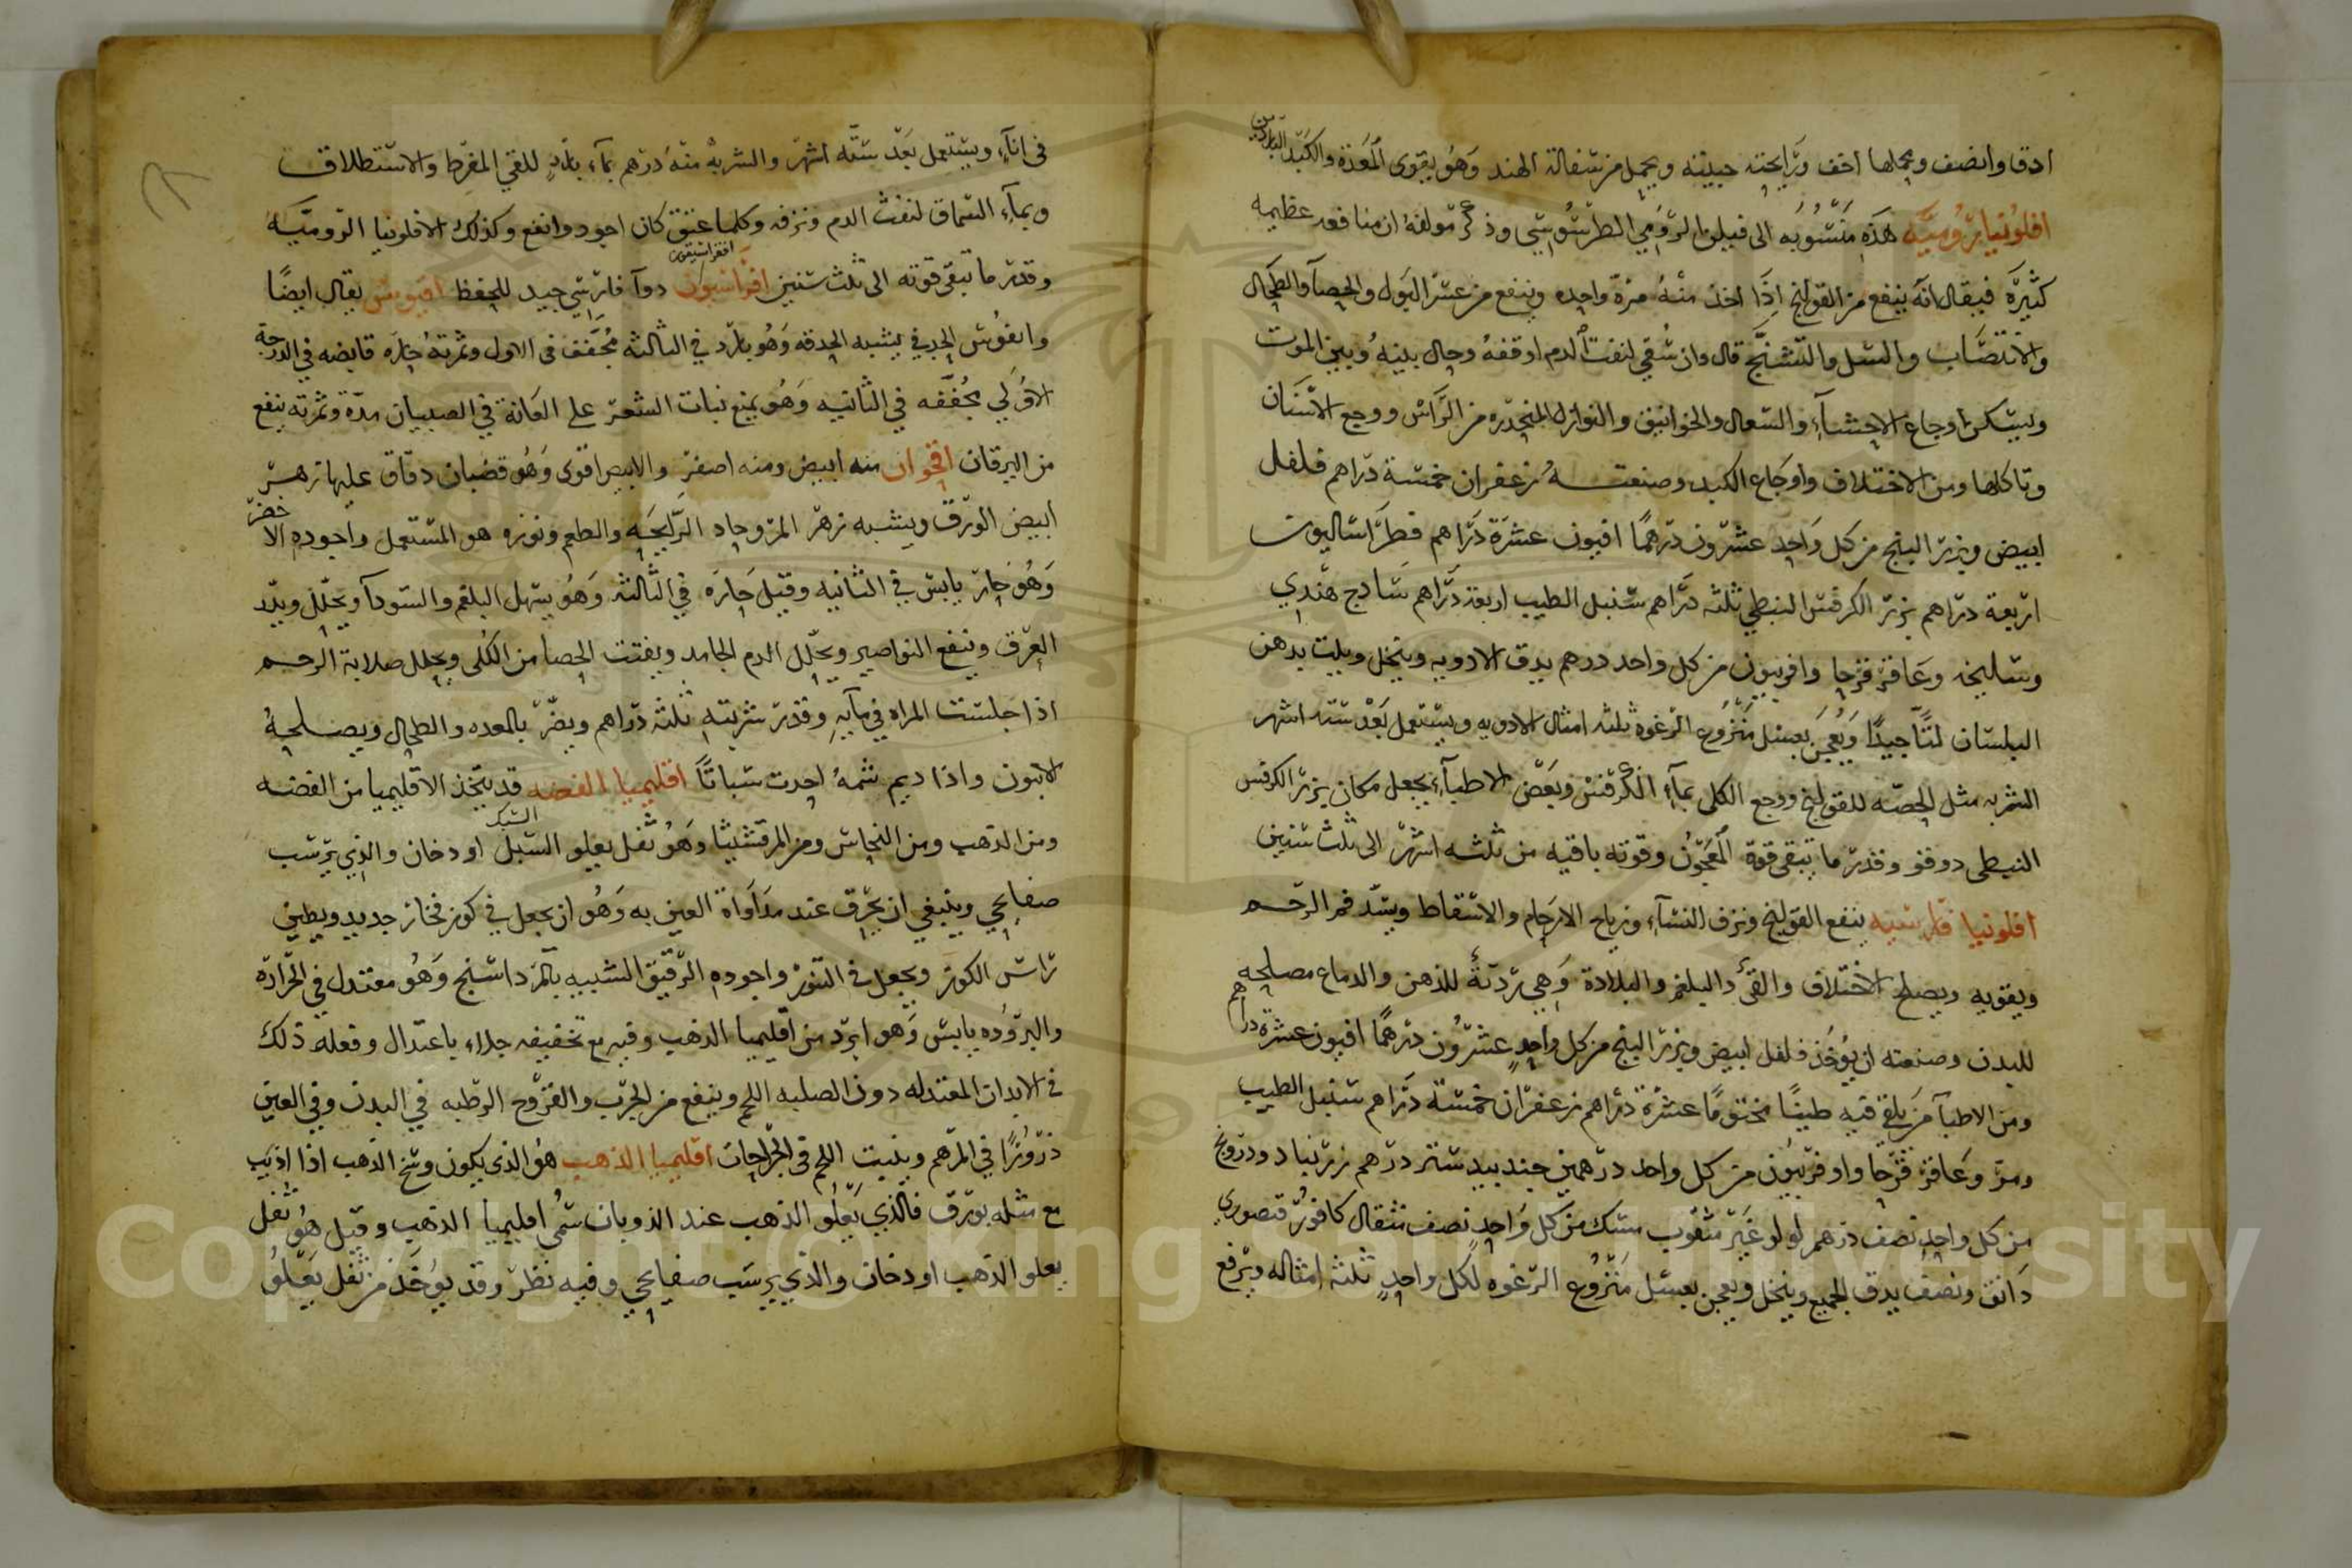 ادق وانضف وعملها اخف ورايحته جيدته ويحمل من سفالة الهند وهو يقوى المعدة والكبد الباردتين
افلونيا رومية هذه منسوبه الى فيلن الرومي الطرسوسي وذكر مولفه ان منافعه عظيمه
كثيرة فيقال انه ينفع من القولنج اذا اخذ منه مرة واحده وينفع من عسر البول والحصآ والطحال
والانتصاب والسل والتشنج قال وان سقي لنفث الدم اوقفه وحال بينه وبين الموت
ويسكن اوجاع الاحشاء والسعال والخوانيق والنوازل المنحدره من الراس ووجع الاسنان
وتاكلها ومن الاختلاف واوجاع الكبد وصنعته زعفران خمسة دراهم فلفل
ابيض وبزر البنج من كل واحد عشرون درهما افيون عشرة دراهم فطراساليون
اربعة دراهم بزر الكرفس النبطي ثلثه دراهم سنبل الطيب اربعة دراهم سادج هندي
وسليخه وعاقر قرحا وافربيون من كل واحد درهم يدق الادويه وينخل ويلت بدهن
البلسان لتا جيدا ويعجن بعسل منزوع الرغوه ثلثه امثال الادويه ويستعمل بعد سته اشهر
الشربه مثل الحمصه للقولنج ووجع الكلى بمآء الكرفس وبعض الاطبآء يجعل مكان بزر الكرفس
النبطى دوقو وقدر ما تبقى قوة المعجون وقوته باقيه من ثلثه اشهر الى ثلث سنين
افلونيا فارسيه ينفع القولنج ونزف النسآء ورياح الارحام والاسقاط ويشد فم الرحم
ويقويه ويصلح الاختلاف والقئ والبلغم والبلادة وهي ردئة للذهن والدماع مصلحه
للبدن وصنعته ان يوخذ فلفل ابيض وبزر البنج من كل واحد عشرون درهما افيون عشرة دراهم
ومن الاطبآ من يلقي فيه طينا مختوما عشرة دراهم زعفران خمسة دراهم سنبل الطيب
ومر وعاقر قرحا واوفربيون من كل واحد درهمين جندبيدستر درهم زرنباد ودرونج
من كل واحد نصف درهم لولو غير مثقوب مسك من كل واحد نصف مثقال كافور قنصوري
دانق ونصف يدق الجميع وينخل ويعجن بعسل منزوع الرغوه لكل واحد ثلثة امثاله ويرفع
فى انآء ويستعمل بعد ستة اشهر والشربة منه درهم بمآء بارد للقي المفرط والاستطلاق
وبمآء السماق لنفث الدم ونزفه وكلما عتق كان اجود وانفع وكذلك الافلونيا الروميه
وقدر ما تبقى قوته الى ثلث سنين افراسيون دوآ فارسي جيد للحفظ افيوس يقال ايضا
وانفوس الجرفي يشبه الحدقه وهو بارد في الثالثه مجفف فى الاول وثمرته حاره قابضه في الدرجة
الاولي مجففه في الثانيه وهو يمنع نبات الشعر على العانة في الصبيان مدة وثمرته ينفع
من اليرقان اقحوان منه ابيض ومنه اصفر والابيض اقوى وهو قضبان دقاق عليها زهر
ابيض الورق ويشبه زهر المر وحاد الرايحه والطعم ونوره هو المستعمل واجوده الاخضر
وهو حار يابس في الثانيه وقيل حاره في الثالثه وهو يسهل البلغم والسودآ ويحلل ويدر
العرق وينفع النواصير ويحلل الدم الجامد ويفتت الحصا من الكلى ويحلل صلابة الرحم
اذا جلست المراه في مآيه وقدر شربته ثلثه دراهم ويضر بالمعده والطحال ويصلحه
الانيون واذا ديم شمه احدث سباتا اقليميا الفضه قد يتخذ الاقليميا من الفضه
ومن الذهب ومن النحاس ومن المرقشيثا وهو ثفل يعلو السبك او دخان والذي يرسب
صفايحي وينبغي ان يحرق عند مداواة العين به وهو ان يجعل في كوز فخار جديد ويطين
راس الكوز ويجعل في التنور واجوده الرقيق الشبيه بالمرداسنج وهو معتدل في الحرارة
والبروده يابس وهو ابرد من اقليميا الذهب وفيه مع تخفيفه جلاء باعتدال وفعله ذلك
في الابدان المعتدله دون الصلبه اللحم وينفع من الجرب والقروح الرطبه في البدن وفي العين
ذرورا في المرهم وينبت اللحم فى الجراحات اقليميا الذهب هو الذي يكون وسخ الذهب اذا اذيب
مع مثله بورق فالذي يعلو الذهب عند الذوبان سمي اقليميا الذهب وقيل هو ثفل
يعلو الذهب او دخان والذي يرسب صفايحي وفيه نظر وقد يوخذ من ثفل يعلو